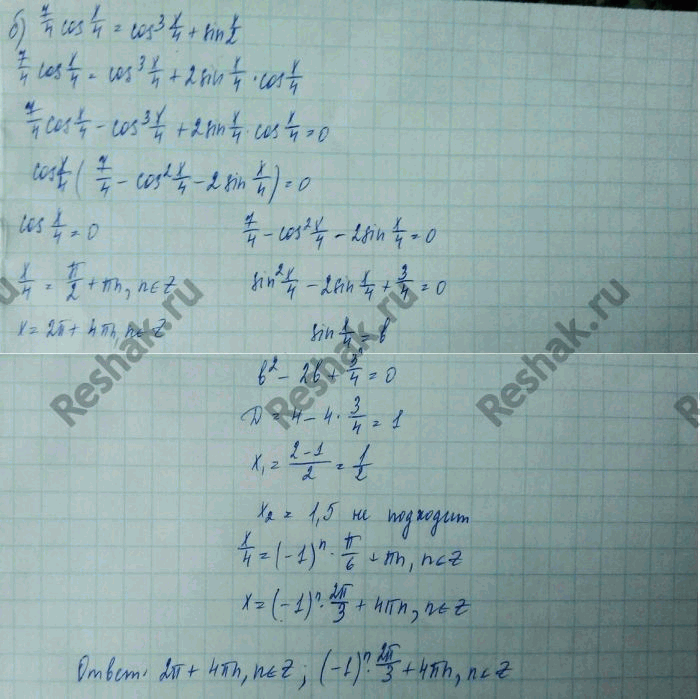 б) 7/4 cos x/4 = cos³ x/4 + sin x/2
7/4 cos x/4 = cos³ x/4 + 2sin x/4 · cos x/4
7/4 cos x/4 - cos³ x/4 + 2sin x/4 · cos x/4 = 0
cos x/4 ( 7/4 - cos² x/4 - 2sin x/4 ) = 0
cos x/4 = 0
x/4 = π/2 + πn, n∈Z
x = 2π + 4πn, n∈Z
7/4 - cos² x/4 - 2sin x/4 = 0
sin² x/4 - 2sin x/4 + 3/4 = 0
sin x/4 = b
b² - 2b + 3/4 = 0
D = 4 - 4 · 3/4 = 1
x₁ = (2-1)/2 = 1/2
x₂ = 1,5 не подходит
x/4 = (-1)ⁿ · π/6 + πn, n∈Z
x = (-1)ⁿ · 2π/3 + 4πn, n∈Z
Ответ: 2π + 4πn, n∈Z ; (-1)ⁿ · 2π/3 + 4πn, n∈Z
Reshak.ru
Reshak.ru